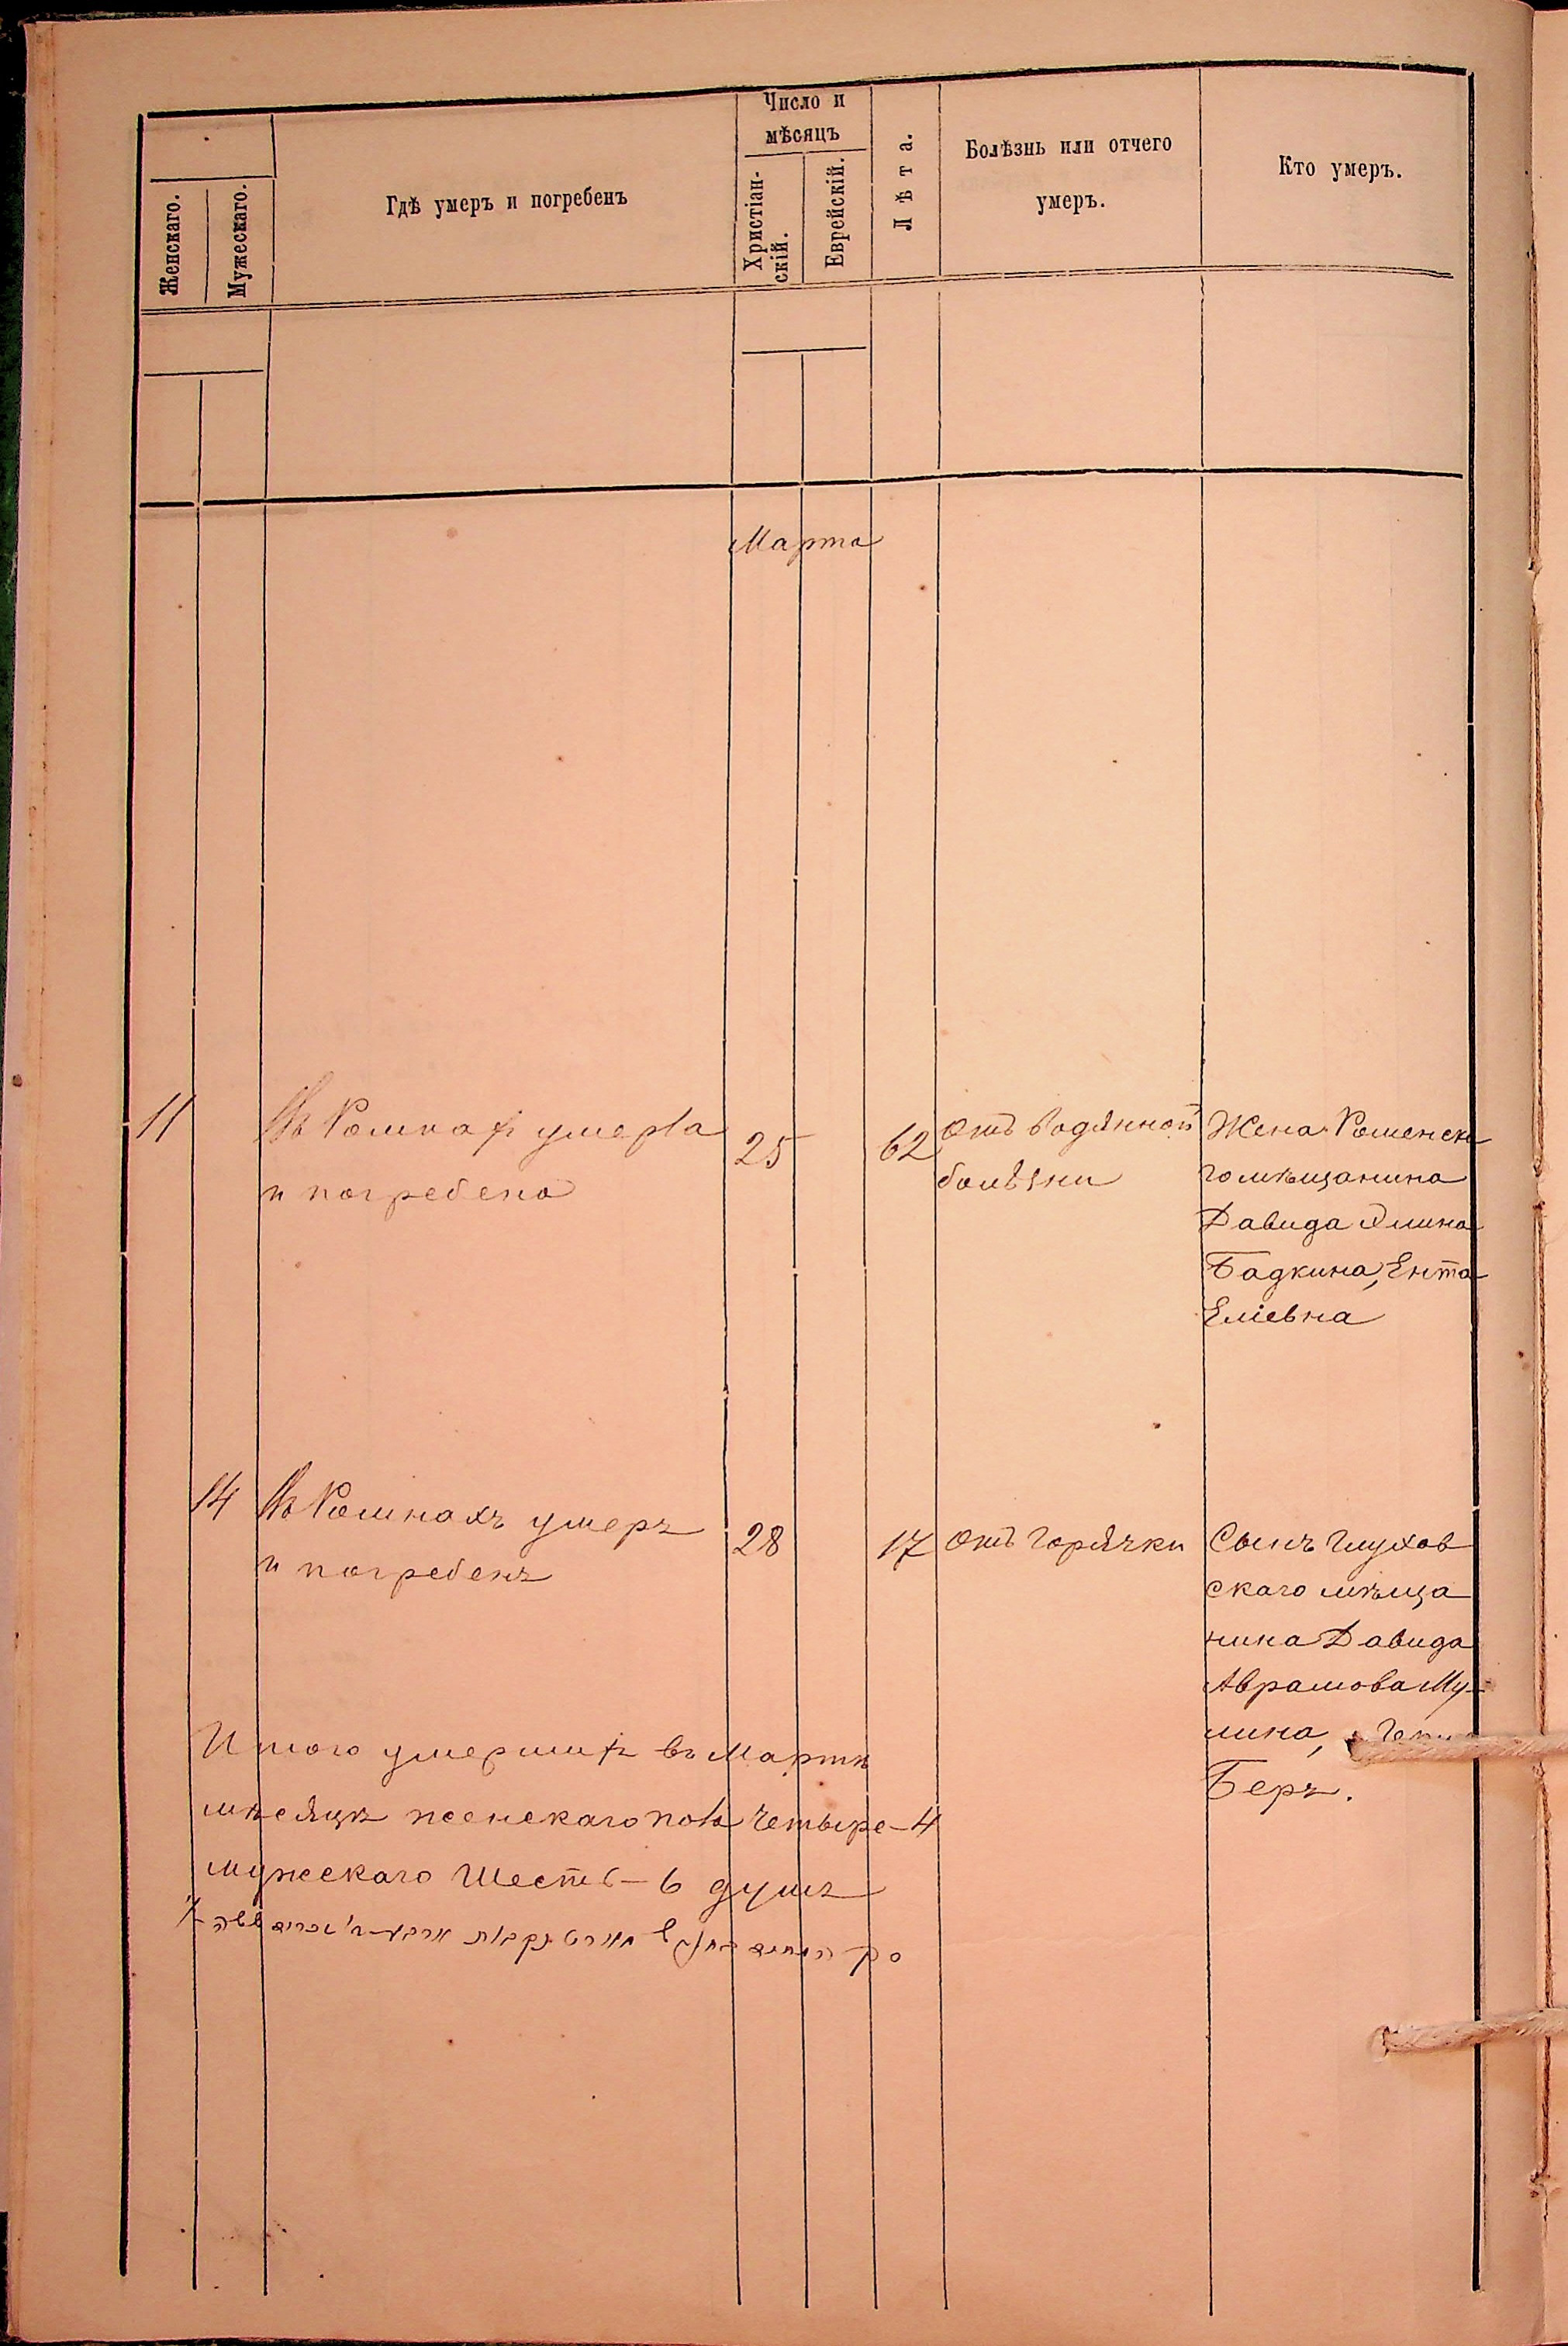 Женскаго.
Мужескаго.
Гдѣ умеръ и погребенъ
Число и
мѣсяцъ
Христіан-
скій.
Еврейскій.
Лѣта.
Болѣзнь или отчего
умеръ.
Кто умеръ.
Марта
11
Въ Ромнах умерла
и погребена
25
62
Отъ водянной
болѣзни
Жена Роменск
го мѣщанина
Давида
Бадкина, Ента
Еліевна
14
Въ Ромнахъ умеръ
и погребенъ
28
17
Отъ горячки
Сынъ Глухов
скаго мѣща
нина Давида
Аврамова Му-
лина,
Беръ.
Итого умерших въ Мартѣ
мѣсяцѣ женскаго пола Четыре - 4
мужескаго Шесть - 6 душъ